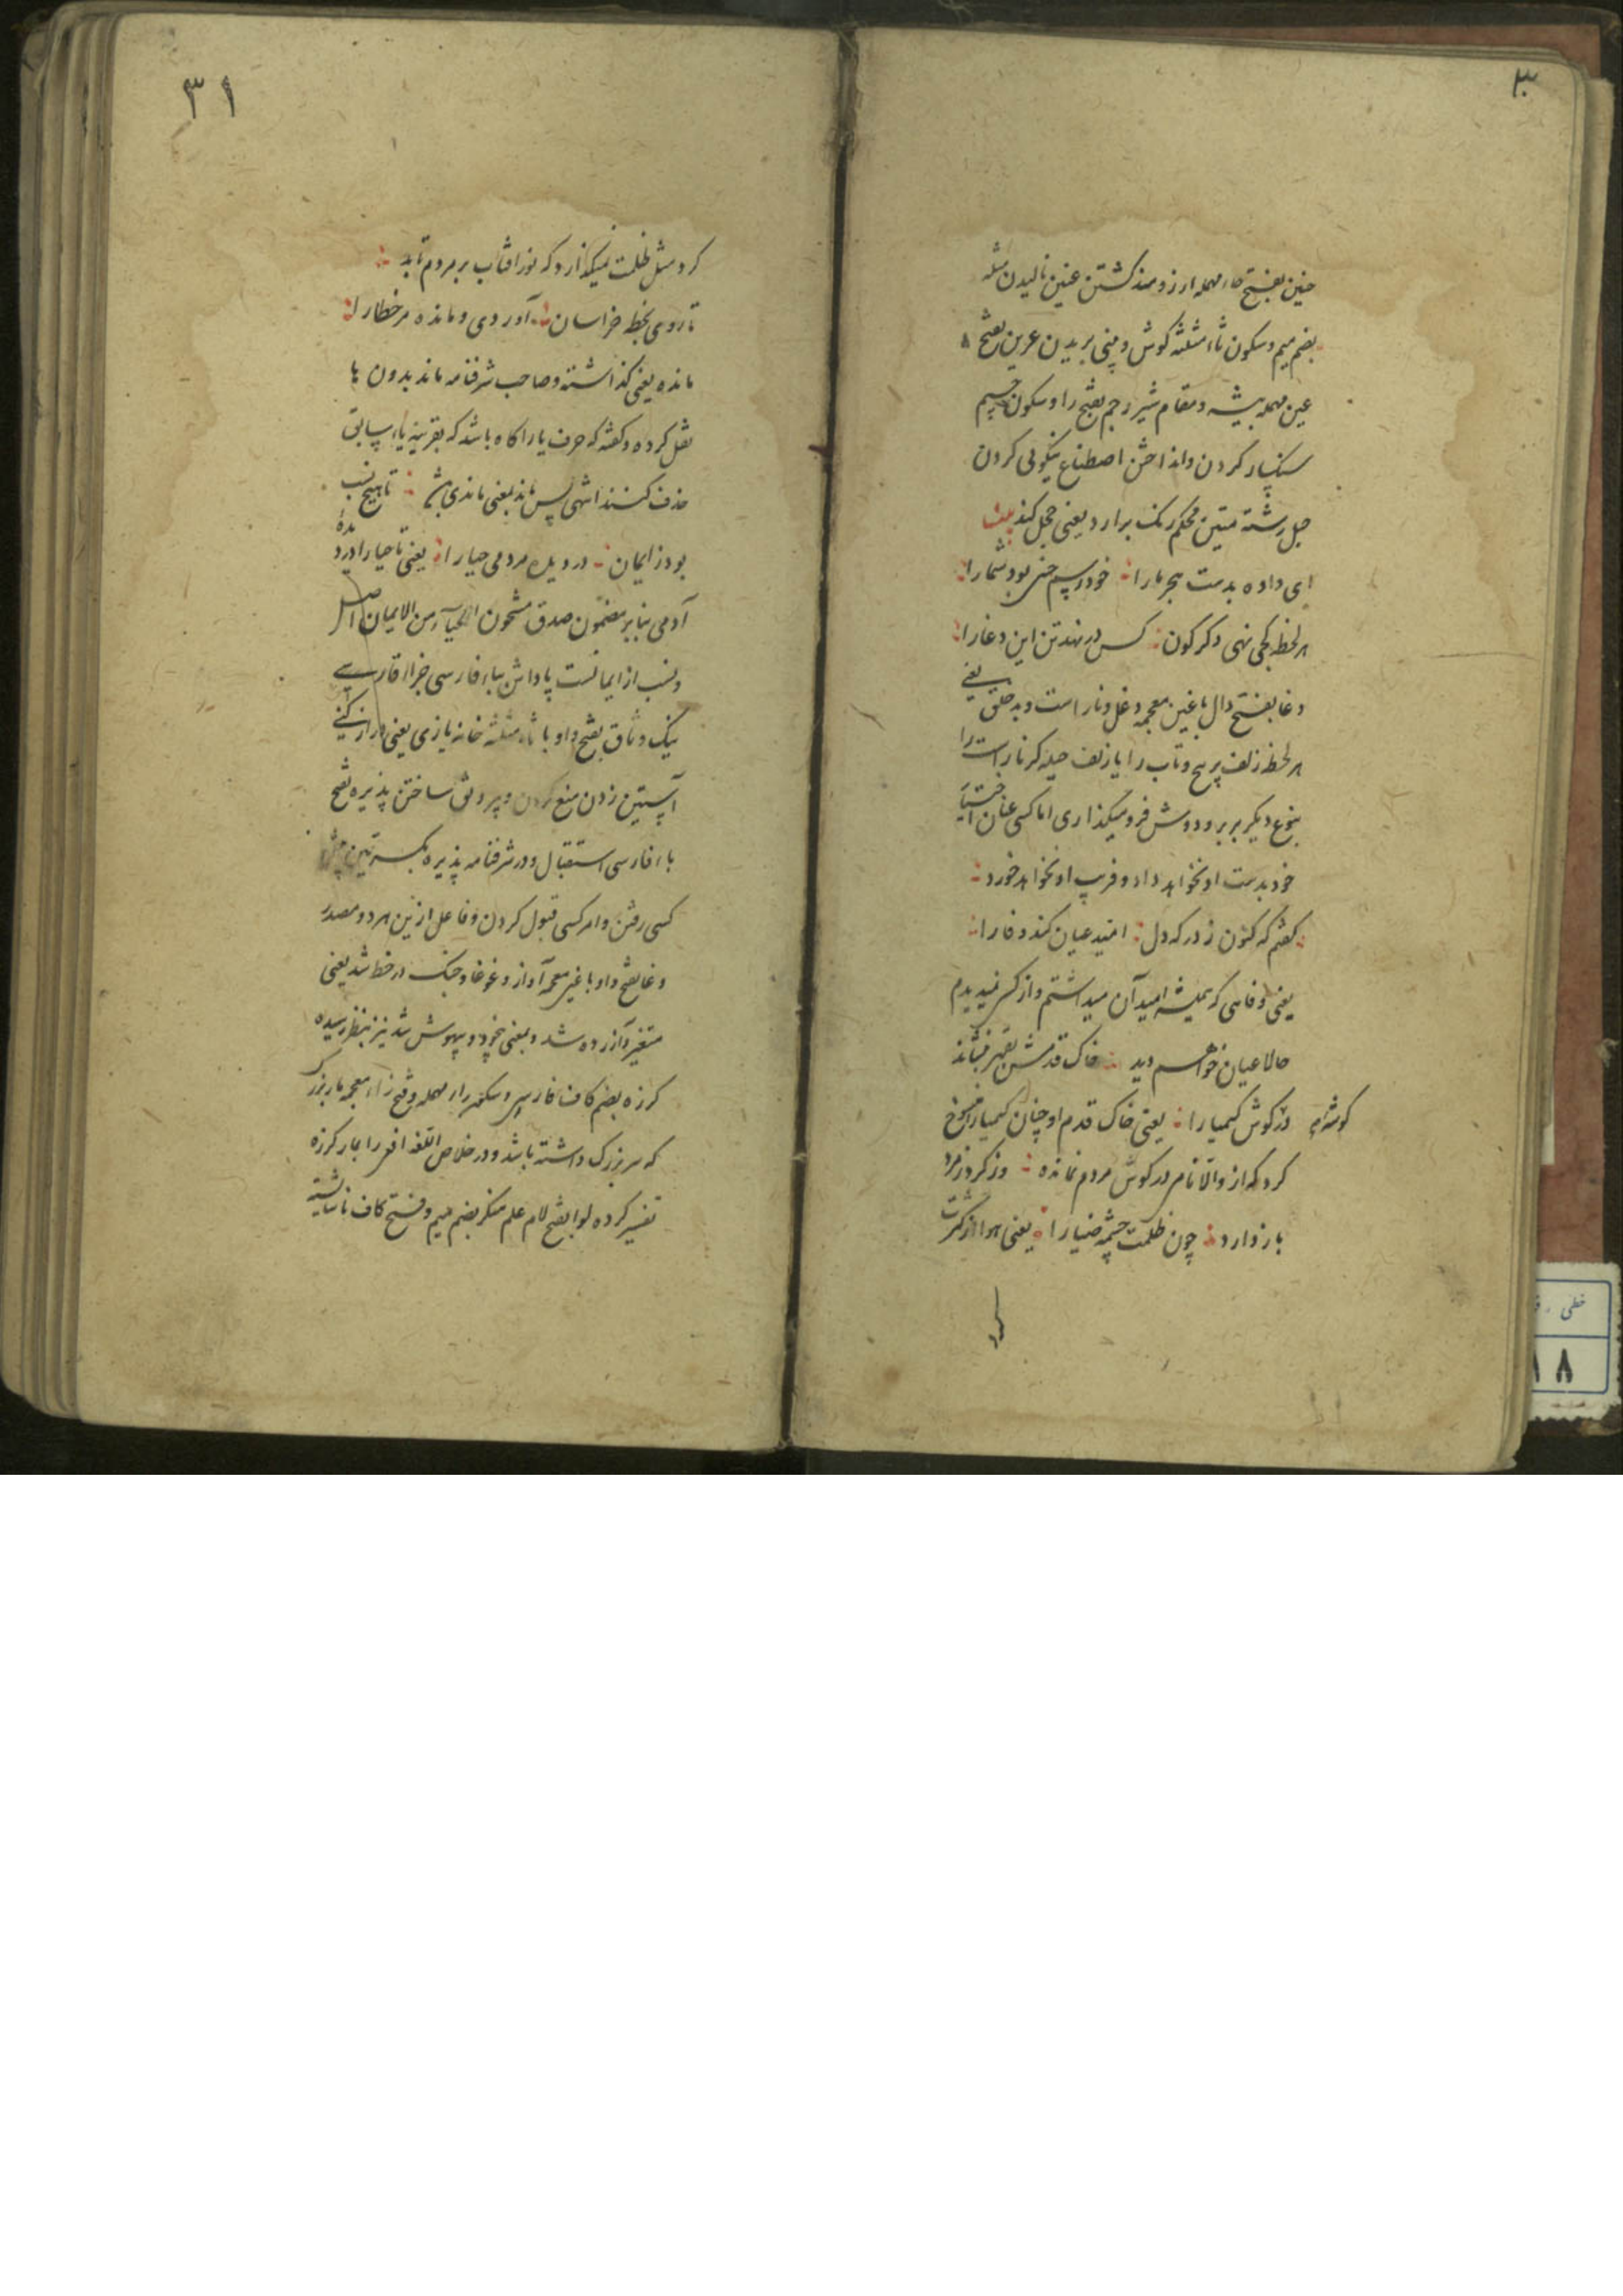 ۳۰
حنین بفتح حاء مهمله ارزومند کشتن عنین نالیدن مثله
بضم میم و سکون ثاء مثلثه کوش و بینی بریدن عرین بفتح
عین مهمله بیشه و مقام شیر رجم بفتح را و سکون جیم
سنکسار کردن و انداختن اصطناع نیکوئی کردن
حبل رشته متین محکم رنک برارد یعنی خجل کند بیت
ای داده بدست هجر مارا خود رسم چنین بود شمارا
هر لحظه کجی نهی دکرکون کس در ندهد تن این دغارا
دغا بفتح دال با غین معجمه دغل و ناراست و بد خلق یعنی
هر لحظه زلف پر پیچ و تاب را یا زلف حیله کر ناراست را
بنوع دیکر بر بر و دوش فرو میکذاری اما کسی عنان اختیار
خود بدست او نخواهد داد و فریب او نخواهد خورد
کفتم که کنون ز درکه دل امید عیان کند وفا را
یعنی وفاهی که همیشه امید آن میداشتم و از کس نمیدیدم
حالا عیان خواهم دید خاک قدمش بقهر بنشاند
در کوش کیمیا را یعنی خاک قدم او چنان کیمیا را منسوخ
کوشه‌ام
کرد که از والا نام در کوش مردم نمانده وز کرد ز مرد
باز دارد چون ظلمت چشمه ضیا را یعنی هوا از کثرت
کرد
۳۱
کرد مثل ظلمت نمیکذارد که نور افتاب بر مردم تابد
تا روی بخطه خراسان آوردی و مانده مر خطا را
مانده یعنی کذاشته و صاحب شرفنامه ماند بدون یا
نقل کرده و کفته که حرف یا را کاه باشد که بقرینه یاء سابق
حذف کنند انتهی پس ماند بمعنی ماندی باشد تا هیچ نسب
بود ز ایمان در دیده مردمی حیا را یعنی تا حیا را در دیدهٔ
آدمی بنابر مضمون صدق مشحون الحیاء من الایمان اصل
و نسب از ایمانست پاداش بباء فارسی جزا افارسی
نیک وثاق بفتح واو با ثاء مثلثه خانه یازی یعنی دراز کنی
آستین زدن منع کردن و پر رونق ساختن پذیره بفتح
باء فارسی استقبال و در شرفنامه پذیره بکسرتین پیش
کسی رفتن و امر کسی قبول کردن و فاعل ازین هر دو مصدر
وغا بفتح واو با غین معجمه آواز و غوغا و جنک در خط شد یعنی
متغیر و آزرده شد و بمعنی بیخود و بیهوش شد نیز بنظر رسیده
کرزه بضم کاف فارسی و سکون راء مهمله و فتح زاء معجمه مار بزرک
که سر بزرک داشته باشد و در خلاص اللغه افعی را بمار کرزه
تفسیر کرده لوا بفتح لام علم منکر بضم میم و فتح کاف ناشایسته
خطی
۱۸